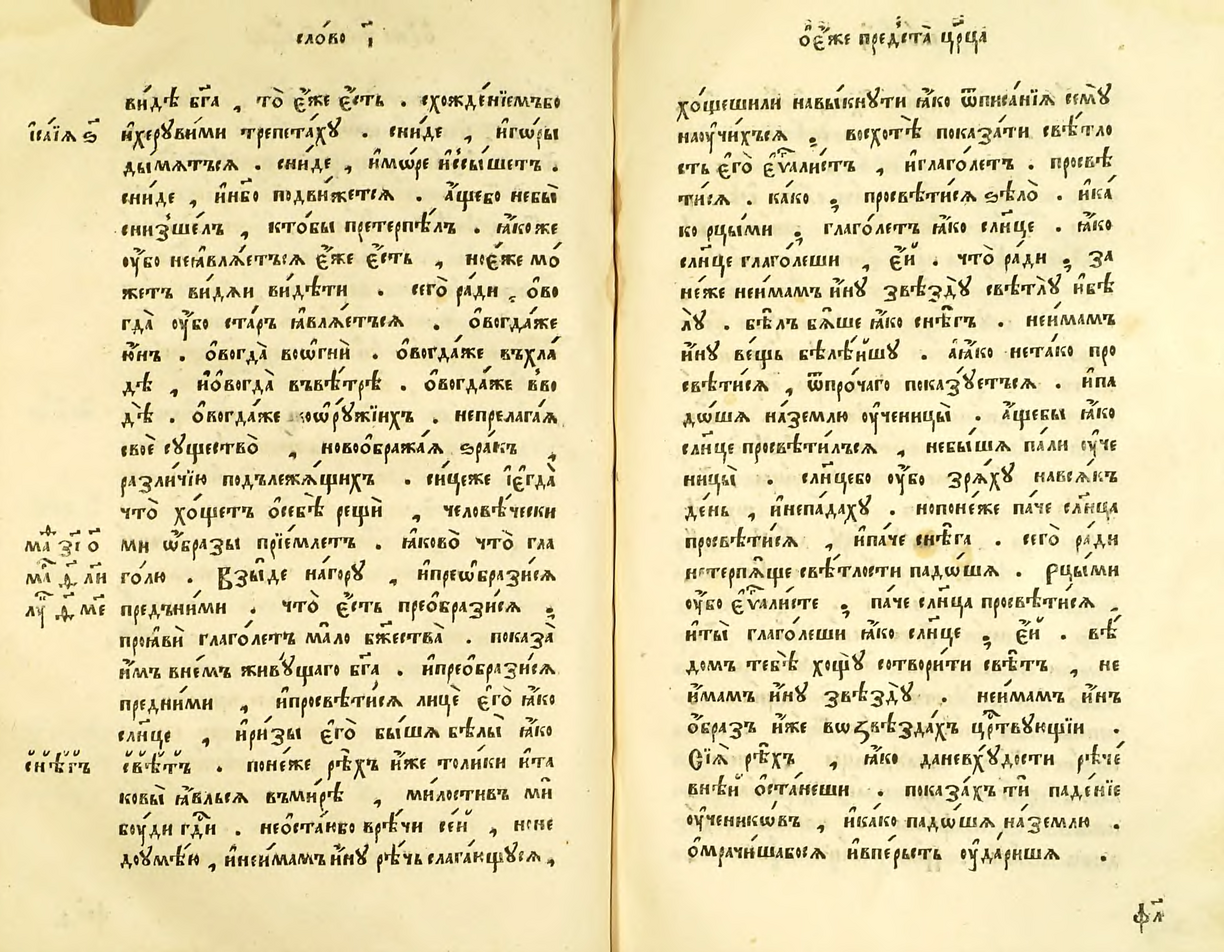 сло́во і҃
ви́дѣ бг҃а , то̀ є҆́же є҆́сть . схожде́нїемъбо
і҆са́їѧ ѕ҃
и҆херꙋви́ми трепета́хꙋ . сни́де , и҆го́ры
дымѧ́тъсѧ . сни́де , и҆мо́ре и҆ссы́шетъ .
сни́де , и҆нб҃о подви́жетсѧ . а҆́щебо небы̀
снизше́лъ , кто́бы претерпѣ́лъ . ꙗ҆́коже
оу҆́бо неꙗ҆влѧ́етъсѧ є҆́же є҆́сть , ное҆́же мо́
жетъ ви́дѧи ви́дѣти . сего̀ ра́ди , ѻ҆во
гда̀ оу҆́бо ста́ръ ꙗ҆влѧ́етъсѧ . ѻ҆вогда́же
ю҆́нъ . ѻ҆вогда̀ воѡ҆гнѝ . ѻ҆вогда́же въхла́
дѣ , и҆ѻ҆вогда̀ въвѣ́трѣ . ѻ҆вогда́же вво
дѣ̀ . ѻ҆вогда́же ѡ҆рꙋ́жїихъ . непрелага́ѧ
своѐ сꙋщество̀ , новоѻбража́ѧ ѕра́къ ,
разли́чїю подълежѧ́щихъ . си́цеже і҆є҆гда̀
что̀ хо́щетъ ѻ҆себѣ̀ рещѝ , человѣ́чески
ма҃ ꙁ҃і ѻ҃
ми ѡ҆́бразы прїе́млетъ . ꙗ҆ково̀ что̀ гла
ма҃ д҃ ли
го́лю . Взы́де наго́рꙋ , и҆преѡбрази́сѧ
лꙋ҃ д҃ ме
предъни́ми . что̀ є҆́сть преѻбрази́сѧ ,
проꙗ҆вѝ глаго́летъ ма́ло бж҃ества̀ . показа̀
и҆́мъ вне́мъ живꙋ́щаго бг҃а . и҆преѻбрази́сѧ
предни́ми , и҆просвѣти́сѧ лицѐ є҆го̀ ꙗ҆́ко
сл҃нце , и҆ри́зы є҆го̀ бы́шѧ бѣлы̀ ꙗ҆́ко
снѣ́гъ
свѣ́тъ . поне́же рѣ́хъ и҆́же толи́ки и҆та
ковы̀ ꙗ҆вльсѧ въми́рѣ , ми́лостивъ мѝ
бꙋ́ди гд҃и . неѻста́нбо врѣ́чи се́й ,ноне
доꙋмѣ́ю , и҆неи́мамъ и҆́нꙋ рѣ́чь слага́ющꙋсѧ ,
ѻ҆є҆́же предста̀ цр҃ца
хо́щешили навы́кнꙋти ꙗ҆́ко ѿписа́нїѧ семꙋ̀
наоу҆чи́хъсѧ , восхотѣ̀ показа́ти свѣ́тло
сть є҆го̀ є҆ѵⷢ҇али́стъ , и҆глаго́летъ . просвѣ
ти́сѧ . ка́ко , просвѣти́сѧ ѕѣло̀ . и҆ка́
ко рцы́ми , глаго́летъ ꙗ҆́ко сл҃нце . ꙗ҆́ко
сл҃нце глаго́леши , є҆́й . что̀ ра́ди , за
не́же неи́мамъ и҆́нꙋ звѣздꙋ̀ свѣ́тлꙋ и҆бѣ́
лꙋ . бѣ́лъ бѧ́ше ꙗ҆́ко снѣ́гъ . неи́мамъ
и҆́нꙋ ве́щь бѣлѣ́йшꙋ . а҆ꙗ҆́ко нета́ко про
свѣти́сѧ , ѿпро́чаго показꙋ́етъсѧ . и҆па
до́шѧ на́землю оу҆ченицы̀ . а҆́щебы ꙗ҆́ко
сл҃нце просвѣти́лъсѧ , небы́шѧ па́ли оу҆че
ницы̀ . сл҃нцебо оу҆́бо зрѧ́хꙋ навсѧ́къ
де́нь , и҆непа́дахꙋ . нопоне́же па́че сл҃нца
просвѣти́сѧ , и҆па́че снѣ́га . сего̀ ра́ди
нетерпѧ́ще свѣ́тлости падо́шѧ . Рцы́ми
оу҆́бо є҆ѵⷢ҇али́сте , па́че сл҃нца просвѣти́сѧ ,
и҆ты̀ глаго́леши ꙗ҆́ко сл҃нце , є҆́й . вѣ́
домъ тебѣ̀ хощꙋ̀ сотвори́ти свѣ́тъ , не
и҆́мамъ и҆́нꙋ звѣздꙋ̀ . неи́мамъ и҆́нъ
ѻ҆́бразъ и҆́же воѕвѣзда́хъ црⷭ҇твꙋющїи .
Сїѧ̀ рѣ́хъ , ꙗ҆́ко даневхꙋ́дости рѣче́
внѣ́й ѻ҆ста́неши . показа́хъ тѝ паде́нїе
оу҆ченикѡ́въ , и҆ка́ко падо́шѧ на́землю .
ѻ҆мрачи́шабосѧ и҆впе́рьсть оу҆да́ришѧ .
фл҃